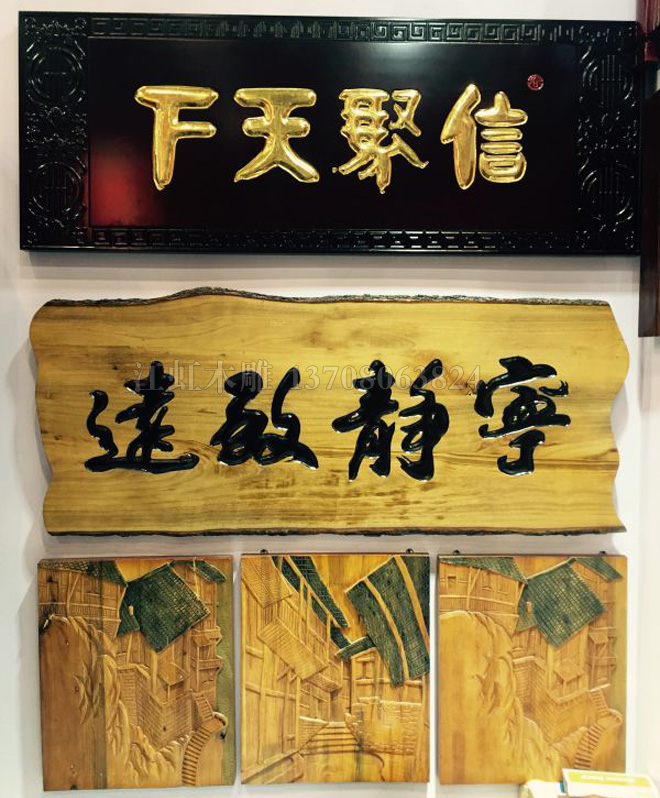 信聚天下
寧静致遠
江虹木雕 13708063824